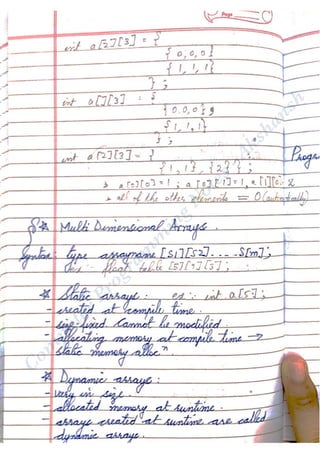 Page
int a[2][3] = {
{0,0,0}
{1,1,1}
};
int a[][3] = {
{0,0,0},
{1,1,1}
};
int a[2][3] = {
{1,1}, {2}};
Progr
a[0][0]=1; a[0][1]=1, a[1][0]=2
all of the other elements = 0 (automatically)
Multi Dimensional Arrays.
Syntax: type arrayname [S1][S2]....S[m];
ex: float table [5][4][3];
Static arrays: ex:- int a[5];
- created at compile time.
- size-fixed. Cannot be modified.
- allocating memory at compile time →
static memory allocⁿ.
Dynamic arrays:
- vary in size.
- allocated memory at runtime.
- arrays created at runtime are called
dynamic arrays.